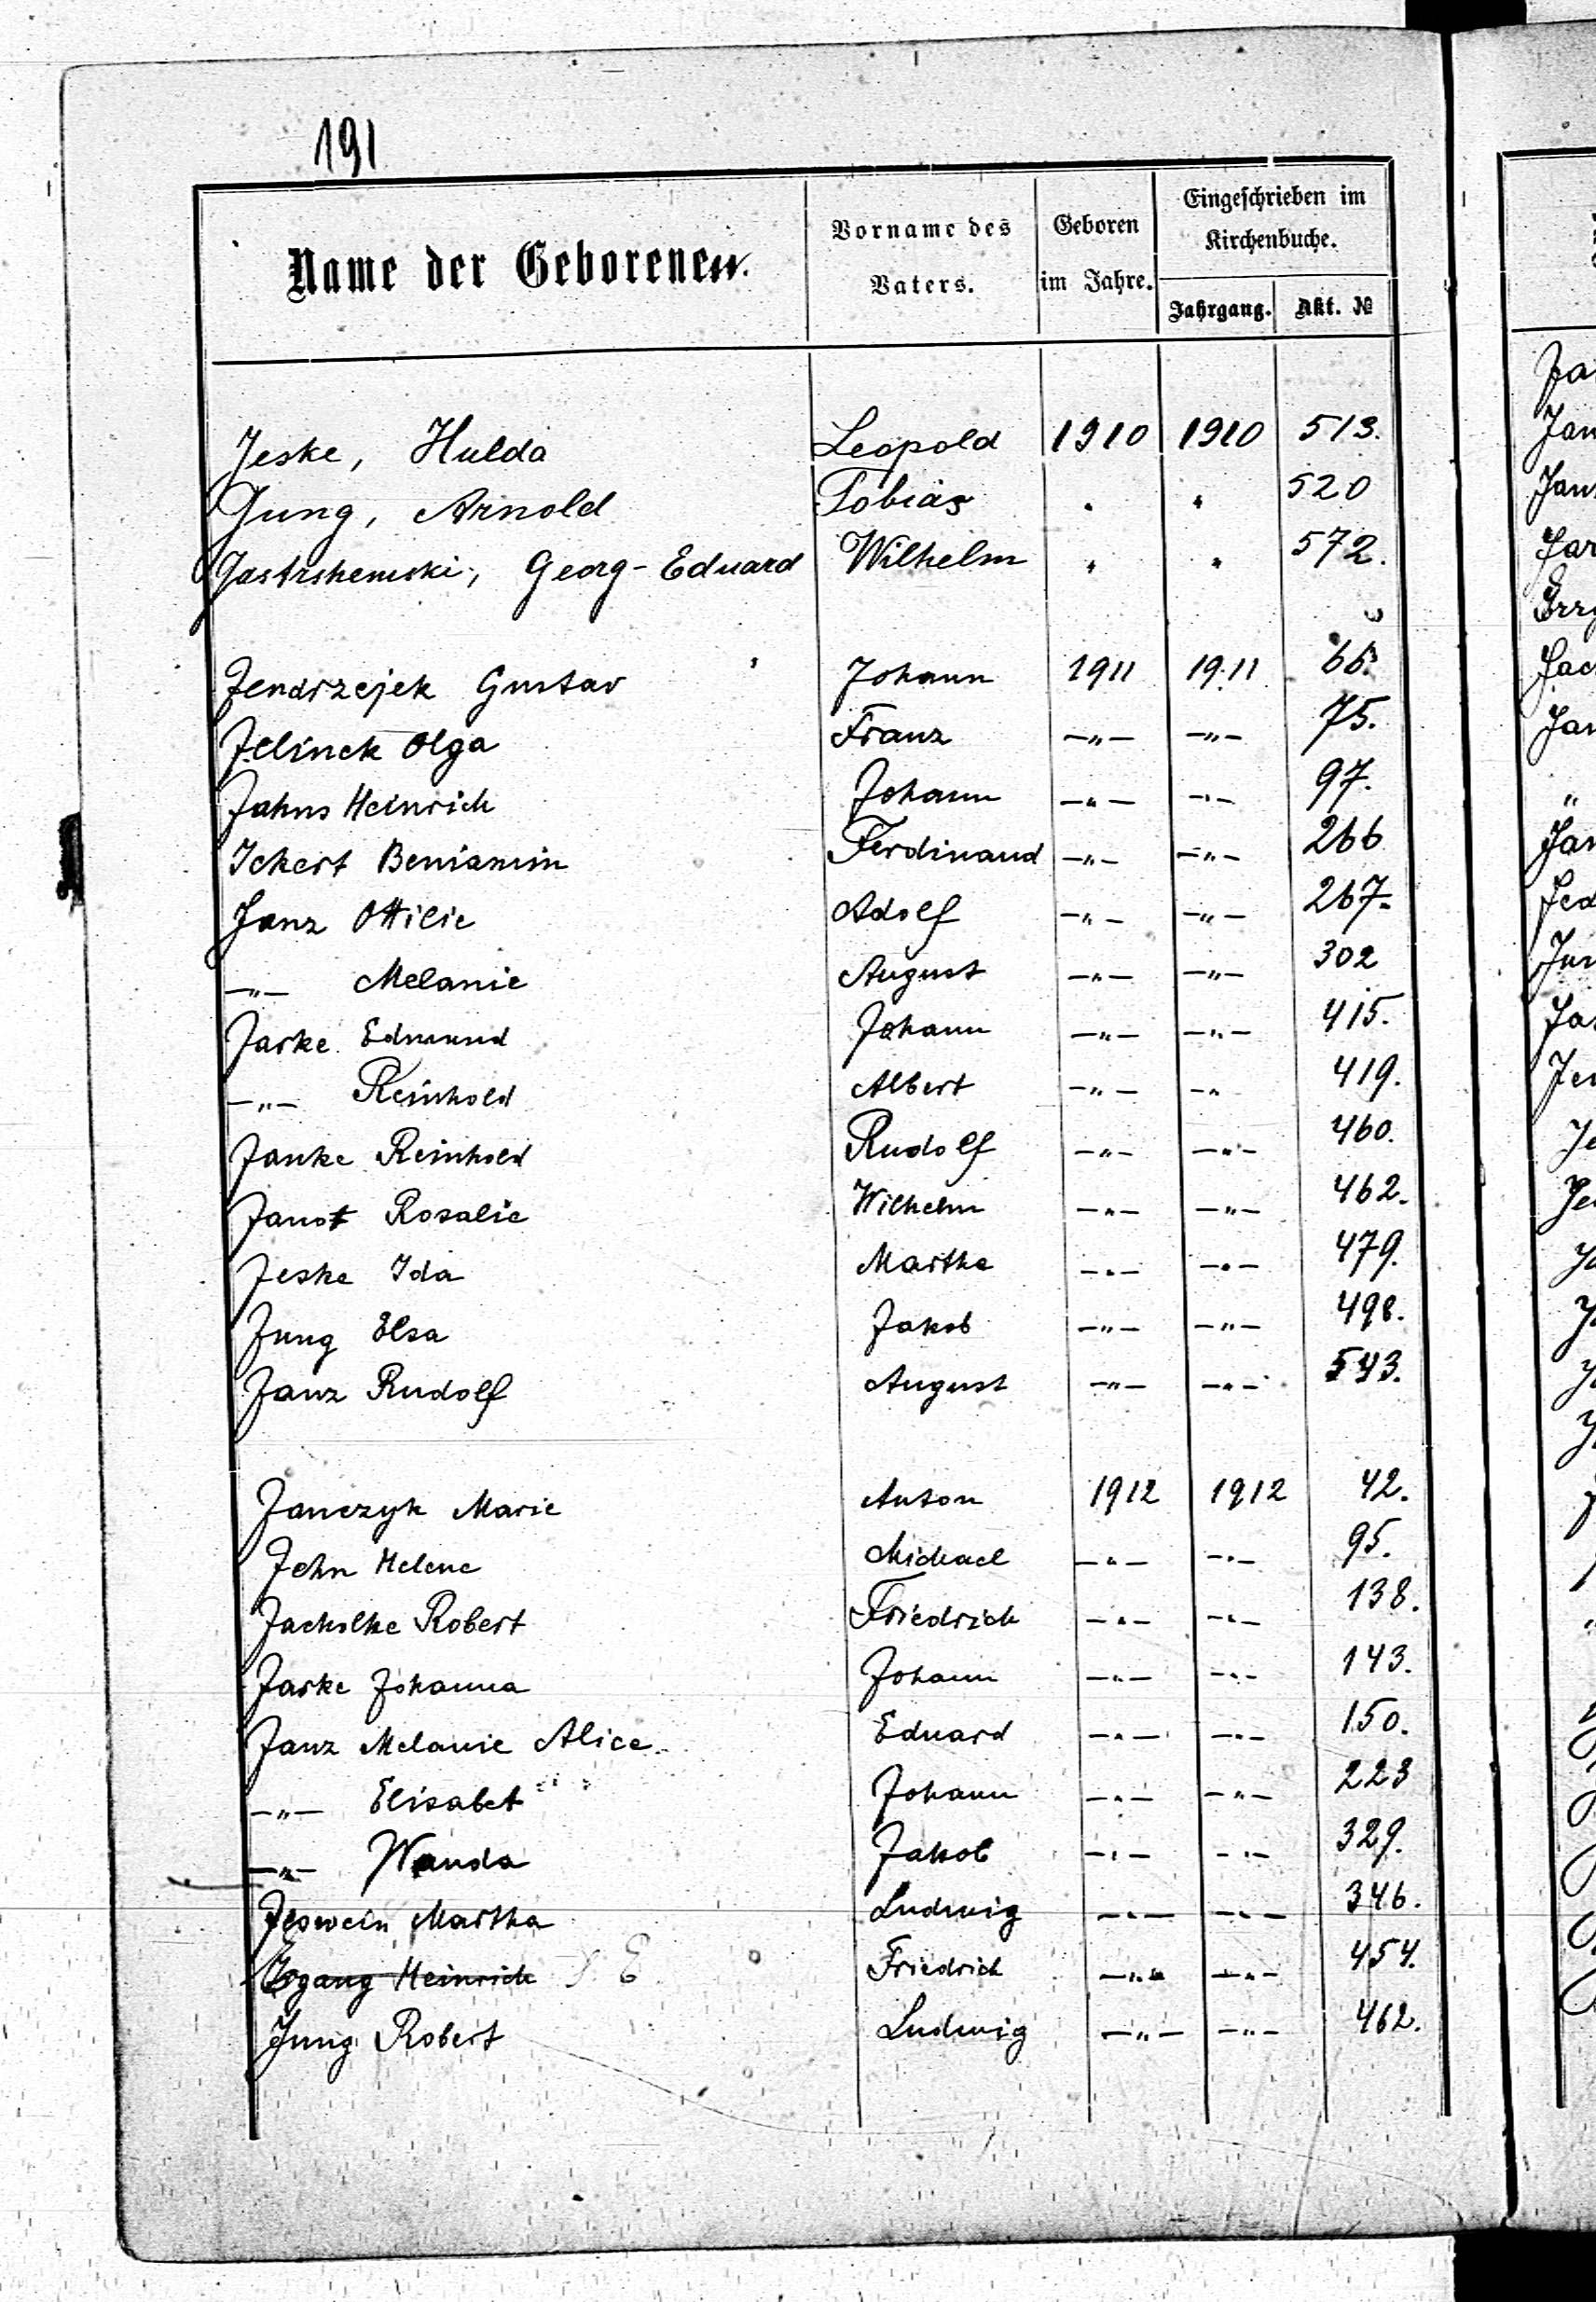 191
Name der Geborenen.
Vorname des Vaters.
Geboren im Jahre.
Eingeschrieben im Kirchenbuche.
Jahrgang. Akt. №
Jeske, Hulda Leopold 1910 1910 513.
Jung, Arnold Tobias " " 520
Jastrshemski, Georg-Eduard Wilhelm " " 572.
Jendrzejek Gustav Johann 1911 1911 66.
Jelinek Olga Franz —"— —"— 75.
Jahns Heinrich Johann —"— —"— 97.
Ickert Beniamin Ferdinand —"— —"— 266
Janz Ottilie Adolf —"— —"— 267.
—"— Melanie August —"— —"— 302
Jarke Edmund Johann —"— —"— 415.
—"— Reinhold Albert —"— —"— 419.
Janke Reinhold Rudolf —"— —"— 460.
Janot Rosalie Wilhelm —"— —"— 462.
Jeske Ida Martha —"— —"— 479.
Jung Elsa Jakob —"— —"— 498.
Janz Rudolf August —"— —"— 543.
Janczyk Marie Anton 1912 1912 42.
Jehn Helene Michael —"— —"— 95.
Jacholke Robert Friedrich —"— —"— 138.
Jarke Johanna Johann —"— —"— 143.
Janz Melanie Alice Eduard —"— —"— 150.
—"— Elisabet Johann —"— —"— 223
—"— Wanda Jakob —"— —"— 329.
Jeswein Martha Ludwig —"— —"— 346.
Irgang Heinrich Friedrich —"— —"— 454.
Jung Robert Ludwig —"— —"— 462.